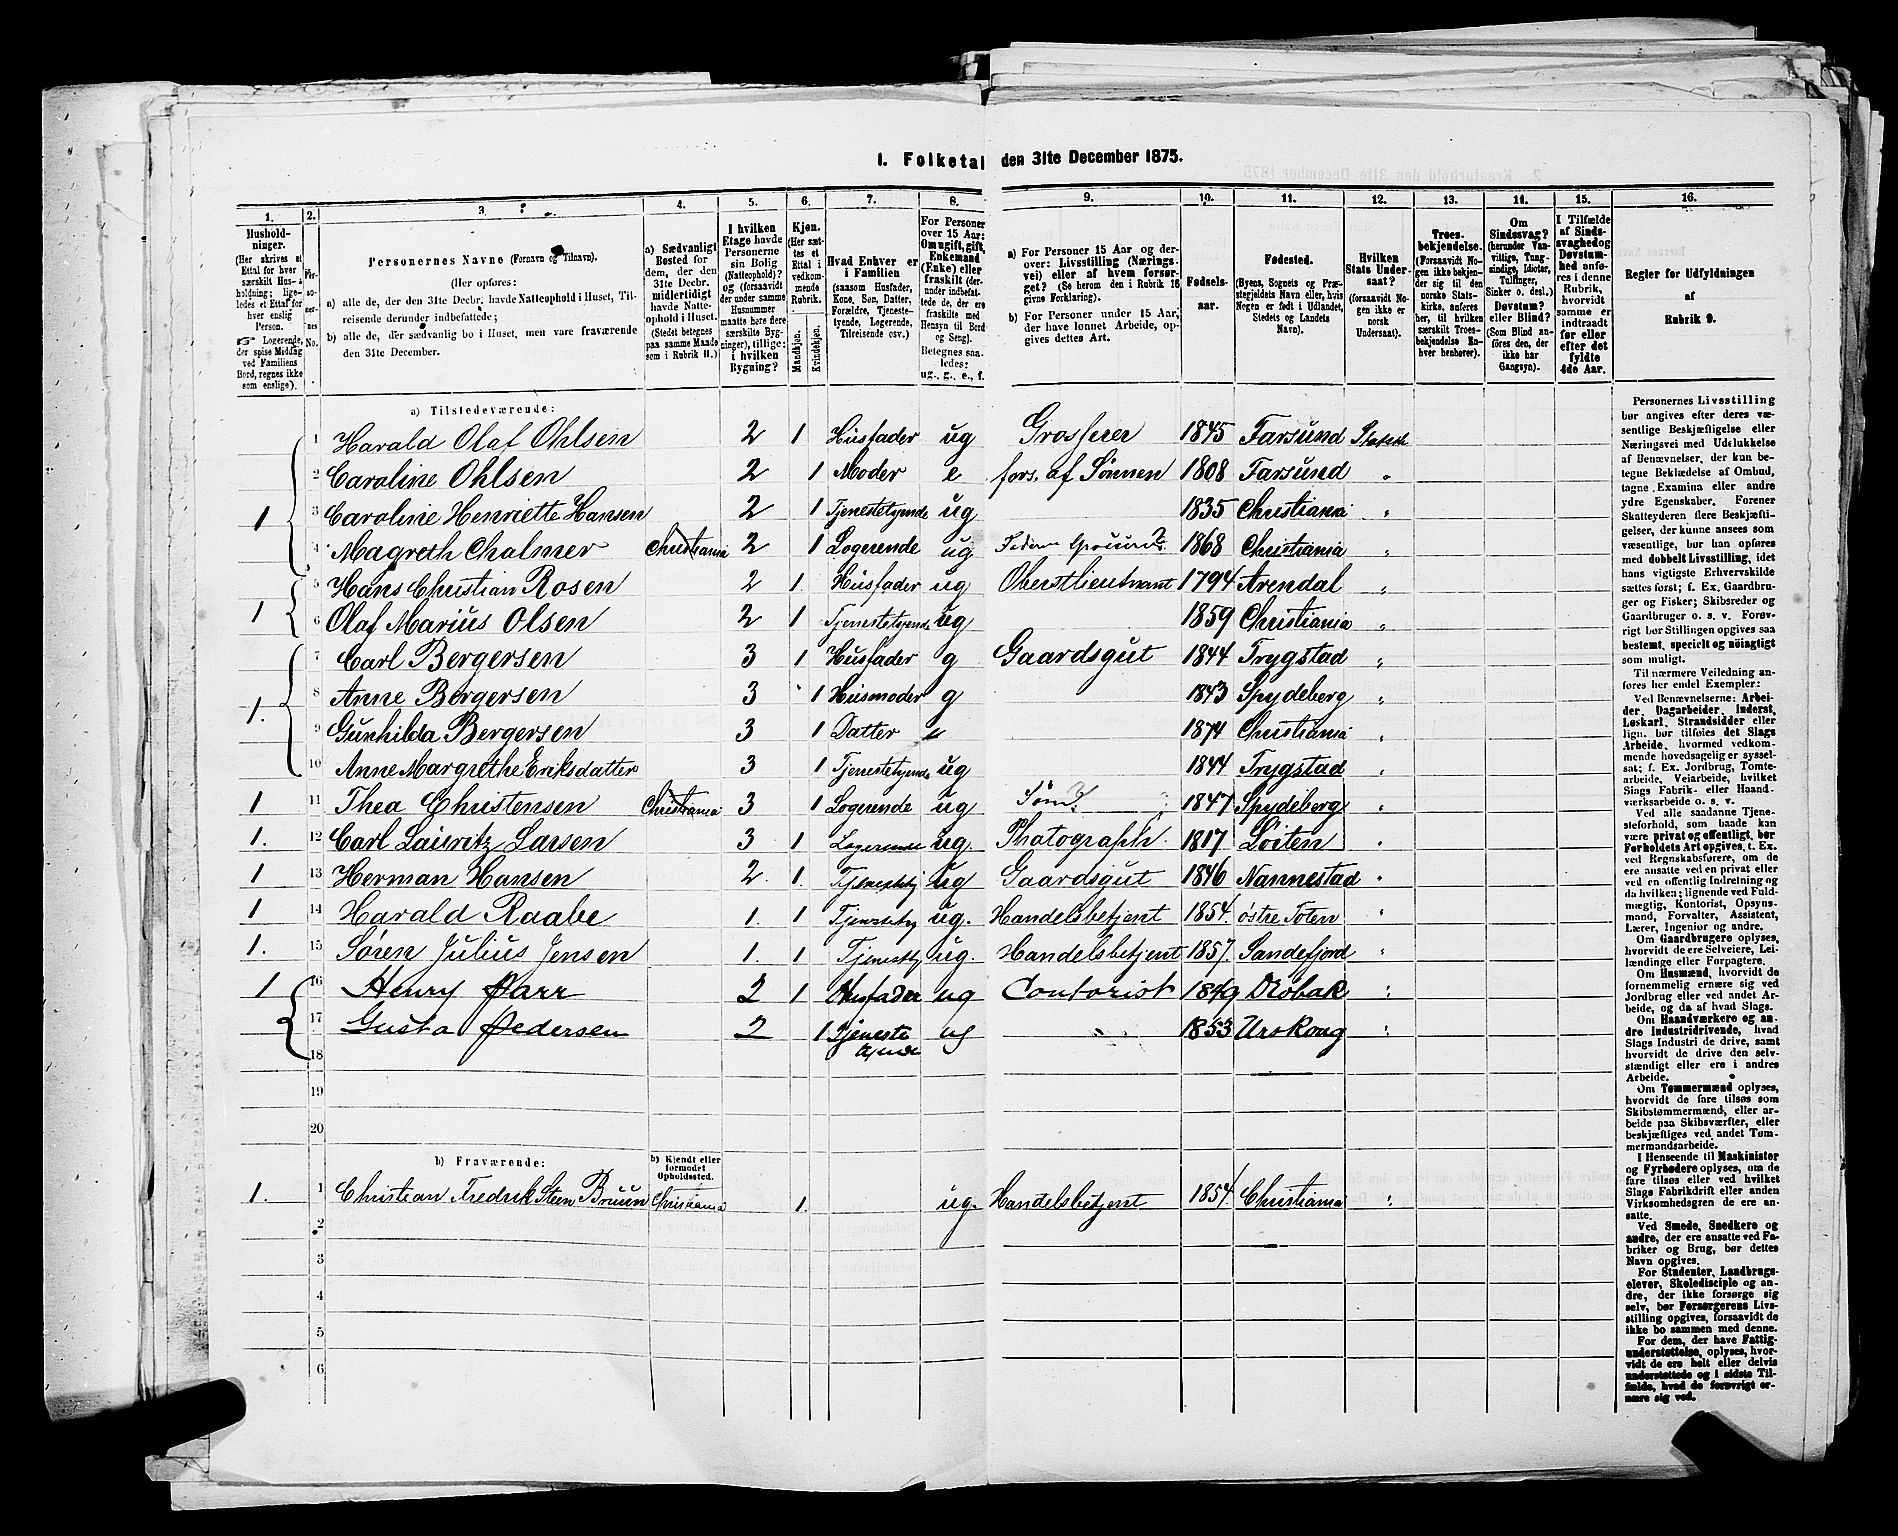 1. Folketal den 31te December 1875.
1. 2. 3. 4. 5. 6. 7. 8. 9. 10. 11. 12. 13. 14. 15. 16.
Hushold-
ninger.
(Her skrives et
Ettal for hver
særskilt Hus-
holdning; lige-
ledes et Ettal for
hver enslig
Person.
Logerende,
der spise Middag
ved Familiens
Bord, regnes ikke
som enslige).
Per-
so-
ner-
nes
No.
Personernes Navne (Fornavn og Tilnavn).
(Her opføres:
a) alle de, der den 31te Decbr. havde Natteophold i Huset, Til-
reisende derunder indbefattede;
b) alle de, der sædvanlig bo i Huset, men vare fraværende
den 31te December.
a) Sædvanligt
Bosted for
dem, der den
31te Decbr.
midlertidigt
havde Natte-
ophold i Huset.
(Stedet betegnes
paa samme Maade
som i Rubrik 11.)
I hvilken
Etage havde
Personerne
sin Bolig
(Natteophold)?
og (forsaavidt
der under samme
Husnummer
maatte høre flere
særskilte Byg-
ninger), tillige:
i hvilken
Bygning?
Kjøn.
(Her sæt-
tes et
Ettal i
vedkom-
mende
Rubrik.
Mandkjøn.
Kvindekjøn.
Hvad Enhver er
i Familien
(saasom Husfader,
Kone, Søn, Datter,
Forældre, Tjeneste-
tyende, Logerende,
Tilreisende osv.)
For Personer
over 15 Aar:
Om ugift, gift,
Enkemand
(Enke) eller
fraskilt (der-
under indbefat-
tede de, der ere
fraskilte med
Hensyn til Bord
og Seng).
Betegnes saa-
ledes:
ug., g., e., f.
a) For Personer 15 Aar og der-
over: Livsstilling (Nærings-
vei) eller af hvem forsør-
get? (Se herom den i Rubrik 16
givne Forklaring).
b) For Personer under 15 Aar,
der have lønnet Arbeide, op-
gives dettes Art.
Fødsels-
aar.
Fødested.
(Byens, Sognets og Præ-
stegjeldets Navn eller, hvis
Nogen er født i Udlandet,
Stedets og Landets
Navn).
Hvilken
Stats Under-
saat?
(forsaavidt No-
gen ikke er
norsk
Undersaat).
Troes-
bekjendelse.
(Forsaavidt No-
gen ikke bekjen-
der sig til den
norske Stats-
kirke, anføres
her, til hvilken
særskilt Troes-
bekjendelse En-
hver henhører).
Om
Sindssvag?
(herunder Van-
vittige, Tung-
sindige, Idioter,
Tullinger,
Sinker o. desl.)
Døvstum?
eller Blind?
(Som Blind an-
føres den, der
ikke har
Gangsyn).
I Tilfælde
af Sinds-
svaghed og
Døvstum-
hed anfø-
res i denne
Rubrik,
hvorvidt
samme er
indtraadt
før eller
efter det
fyldte
4de Aar.
Regler for Udfyldningen
af
Rubrik 9.
a) Tilstedeværende:
1 Harald Olaf Ohlsen 2 1 Husfader ug Grosserer 1845 Farsund
2 Caroline Ohlsen 2 1 Moder e fors. af Sønnen 1808 Farsund "
1 3 Caroline Henriette Hansen 2 1 Tjenestetyende ug 1835 Christiania "
4 Magreth Chalmer Christiania 2 1 Logerende ug 1868 Christiania "
5 Hans Christian Rosen 2 1. Husfader ug Oberstlieutnant 1794 Arendal "
1 6 Olaf Marius Olsen 2 1 Tjenestetyende ug 1859 Christiania "
7 Carl Bergersen 3 1 Husfader g Gaardsgut 1844 Trygstad "
8 Anne Bergersen 3 1 Husmoder g 1843 Spydeberg "
1. 9 Gunhilda Bergersen 3 1 Datter 1874 Christiania "
10 Anne Margrethe Eriksdatter 3 1 Tjenestetyende ug 1844 Trygstad "
1 11 Thea Christensen Christiania 3 1 Logerende ug 1847 Spydeberg "
1. 12 Carl Lauritz Larsen 3 1 Logerende ug. Photograph. 1817 Løiten "
1 13 Herman Hansen 2. 1. Tjenestety ug Gaardsgut 1846 Nannestad "
1 14 Harald Raabe 1. 1 Tjenestety ug. Handelsbetjent 1854. østre Toten "
1. 15 Søren Julius Jensen 1. 1 Tjenestty ug. Handelsbetjent 1857. Sandefjord "
1 16 Henry Parr 2 1 Husfader ug Contorist 1849 Drøbak "
17 Gusta Pedersen 2 1 Tjeneste ug " " 1853 Urskoug "
18 tyende
19
20
b) Fraværende:
b) Kjendt eller
formodet
Opholdssted.
1. 1 Christian Fredrik Steen Bruun Christiania 1. ug. Handelsbetjent 1854. Christiania "
2
3
4
5
6
Personernes Livsstilling
bør angives efter deres væ-
sentlige Beskjæftigelse eller
Næringsvei med Udelukkelse
af Benævnelser, der kun be-
tegne Beklædelse af Ombud,
tagne Examina eller andre
ydre Egenskaber. Forener
Skatteyderen flere Beskjæfti-
gelser, der kunne ansees som
væsentlige, bør han opføres
med dobbelt Livsstilling, idet
hans vigtigste Erhvervskilde
sættes først; f. Ex. Gaardbru-
ger og Fisker; Skibsreder og
Gaardbruger o. s. v. Forøv-
rigt bør Stillingen opgives saa
bestemt, specielt og nøiagtigt
som muligt.
Til nærmere Veiledning an-
føres her endel Exempler:
Ved Benævnelserne: Arbei-
der, Dagarbeider, Inderst,
Løskarl, Strandsidder eller
lign. bør tilføies det Slags
Arbeide, hvormed vedkom-
mende hovedsagelig er syssel-
sat; f. Ex. Jordbrug, Tomte-
arbeide, Veiarbeide, hvilket
Slags Fabrik- eller Haand-
værksarbeide o. s. v.
Ved alle saadanne Tjene-
steforhold, som baade kan
være privat og offentligt, bør
Forholdets Art opgives, t. Ex.
ved Regnskabsførere, om de
ere ansatte ved en privat eller
ved en offentlig Indretning og
da hvilken; lignende ved Fuld-
mægtig, Kontorist, Opsyns-
mand, Forvalter, Assistent,
Lærer, Ingeniør og andre.
Om Gaardbrugere oplyses,
hvorvidt de ere Selveiere, Lei-
lændinge eller Forpagtere.
Om Husmænd, hvorvidt de
fornemmelig ernære sig ved
Jordbrug eller ved andet Ar-
beide, og da af hvad Slags.
Om Haandværkere og an-
dre Industridrivende, hvad
Slags Industri de drive, samt
hvorvidt de drive den selv-
stændigt eller ere i andres
Arbeide.
Om Tømmermænd oplyses,
hvorvidt de fare tilsøs som
Skibstømmermænd, eller ar-
beide paa Skibsværfter, eller
beskjæftiges ved andet Tøm-
mermandsarbeide.
I Henseende til Maskinister
og Fyrbødere oplyses, om de
fare tilsøs eller ved hvilket
Slags Fabrikdrift eller anden
Virksomhedsgren de ere an-
satte.
Ved Smede, Snedkere og
andre, der ere ansatte ved Fa-
briker og Brug, bør dettes
Navn opgives.
For Studenter, Landbrugs-
elever, Skoledisciple og an-
dre, der ikke forsørge sig
selv, bør Forsørgerens Livs-
stilling opgives, forsaavidt de
ikke bo sammen med denne.
For dem, der have Fattig-
understøttelse, oplyses, hvor-
vidt de ere helt eller delvis
understøttede og i sidste Til-
fælde, hvad de forøvrigt er-
nære sig ved.